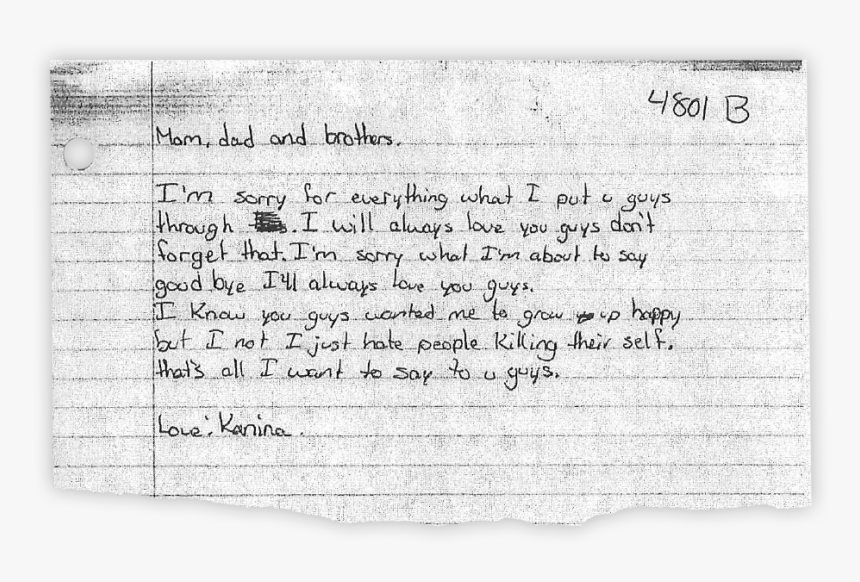 4801 B
Mom, dad and brothers.
I'm sorry for everything what I put u guys
through . I will always love you guys don't
forget that. I'm sorry what I'm about to say
good bye I'll always love you guys.
I Know you guys wanted me to grow up happy
but I not I just hate people Killing their self.
that's all I want to say to u guys.
Love: Kanina.